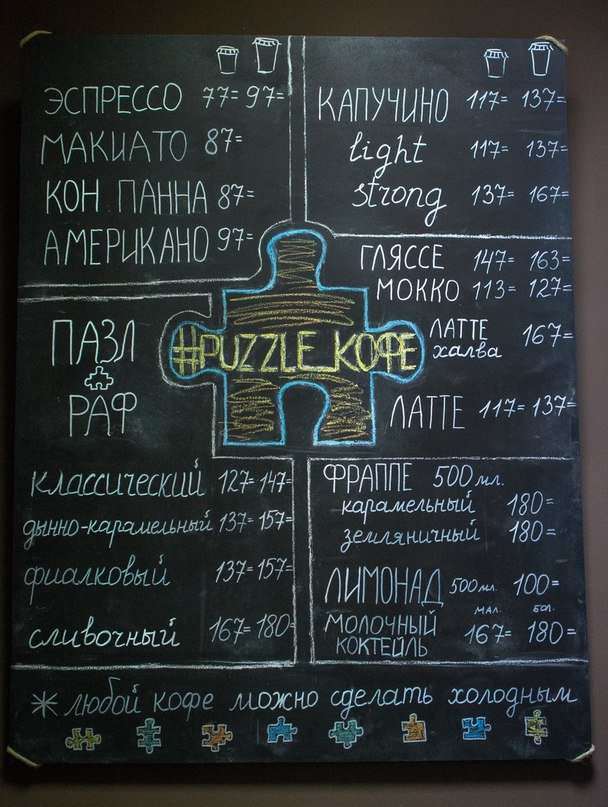 ЭСПРЕССО 77= 97=
МАКИАТО 87=
КОН ПАННА 87=
АМЕРИКАНО 97=
КАПУЧИНО 117= 137=
light 117= 137=
strong 137= 167=
ГЛЯССЕ 147= 163=
МОККО 113= 127=
ЛАТТЕ
халва 167=
ЛАТТЕ 117= 137=
#PUZZLE_КОФЕ
ПАЗЛ
РАФ
классический 127= 147=
дынно-карамельный 137= 157=
фиалковый 137= 157=
сливочный 167= 180=
ФРАППЕ 500 мл.
карамельный 180=
земляничный 180=
ЛИМОНАД 500 мл. 100=
мал. бол.
МОЛОЧНЫЙ
КОКТЕЙЛЬ 167= 180=
* любой кофе можно сделать холодным